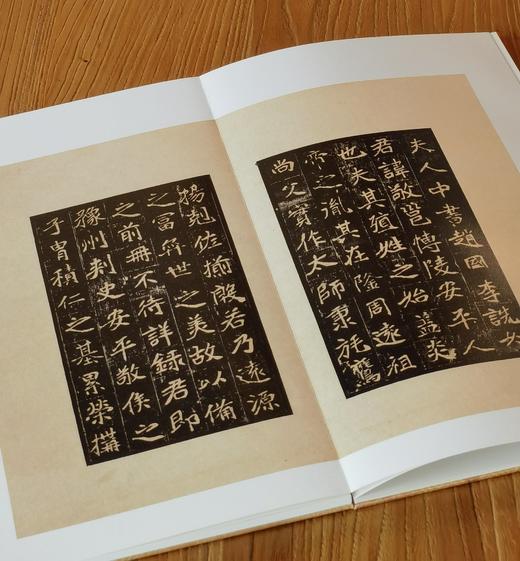 夫人中書趙國李詵女
君諱敬邕博陵安平人
也夫其殖姓之始蓋炎
帝之胤其在隆周遠祖
尚父實作太師秉旄鷹
揚剋佐揃殷若乃遠源
之富奕世之美故以備
之前冊不待詳錄君即
豫州刺史安平敬侯之
子胄積仁之基累榮構